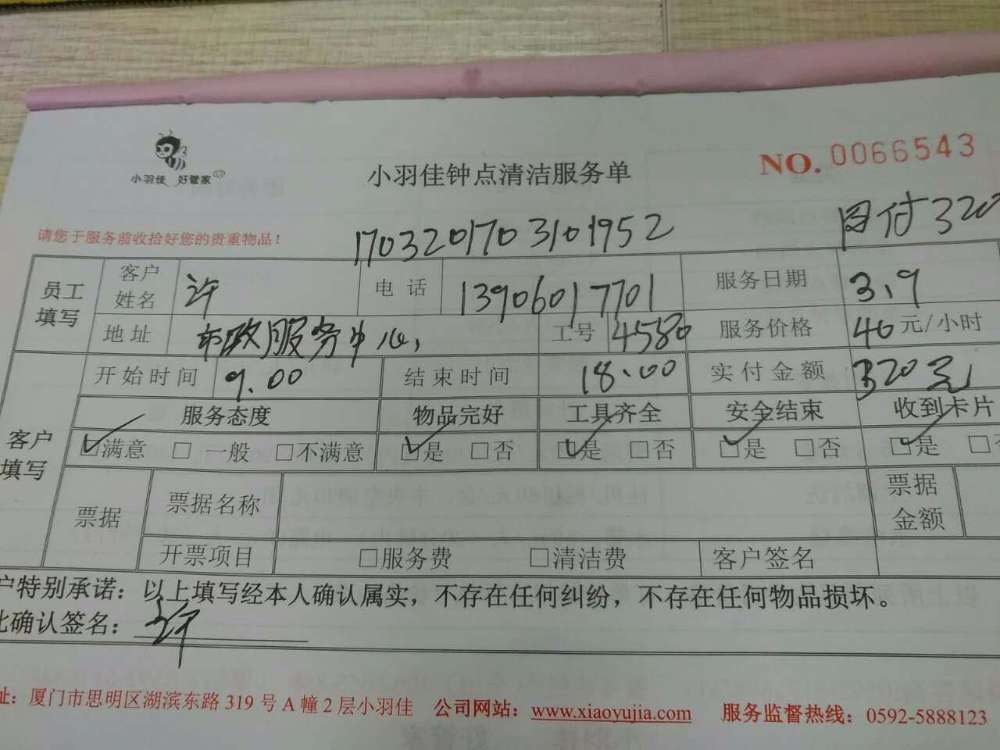 小羽佳 好管家
小羽佳钟点清洁服务单
NO. 0066543
请您于服务前收拾好您的贵重物品!
1703201703101952
付320
员工填写 客户姓名 许 电话 13906017701 服务日期 3.9
地址 市政服务中心, 工号 4580 服务价格 40元/小时
客户填写 开始时间 9.00 结束时间 18.00 实付金额 320元
服务态度 物品完好 工具齐全 安全结束 收到卡片
☑满意 □一般 □不满意 ☑是 □否 ☑是 □否 ☑是 □否 ☑是 □否
票据 票据名称 票据金额
开票项目 □服务费 □清洁费 客户签名
户特别承诺：以上填写经本人确认属实，不存在任何纠纷，不存在任何物品损坏。
此确认签名：许
址：厦门市思明区湖滨东路 319 号 A 幢 2 层小羽佳 公司网站：www.xiaoyujia.com 服务监督热线：0592-5888123